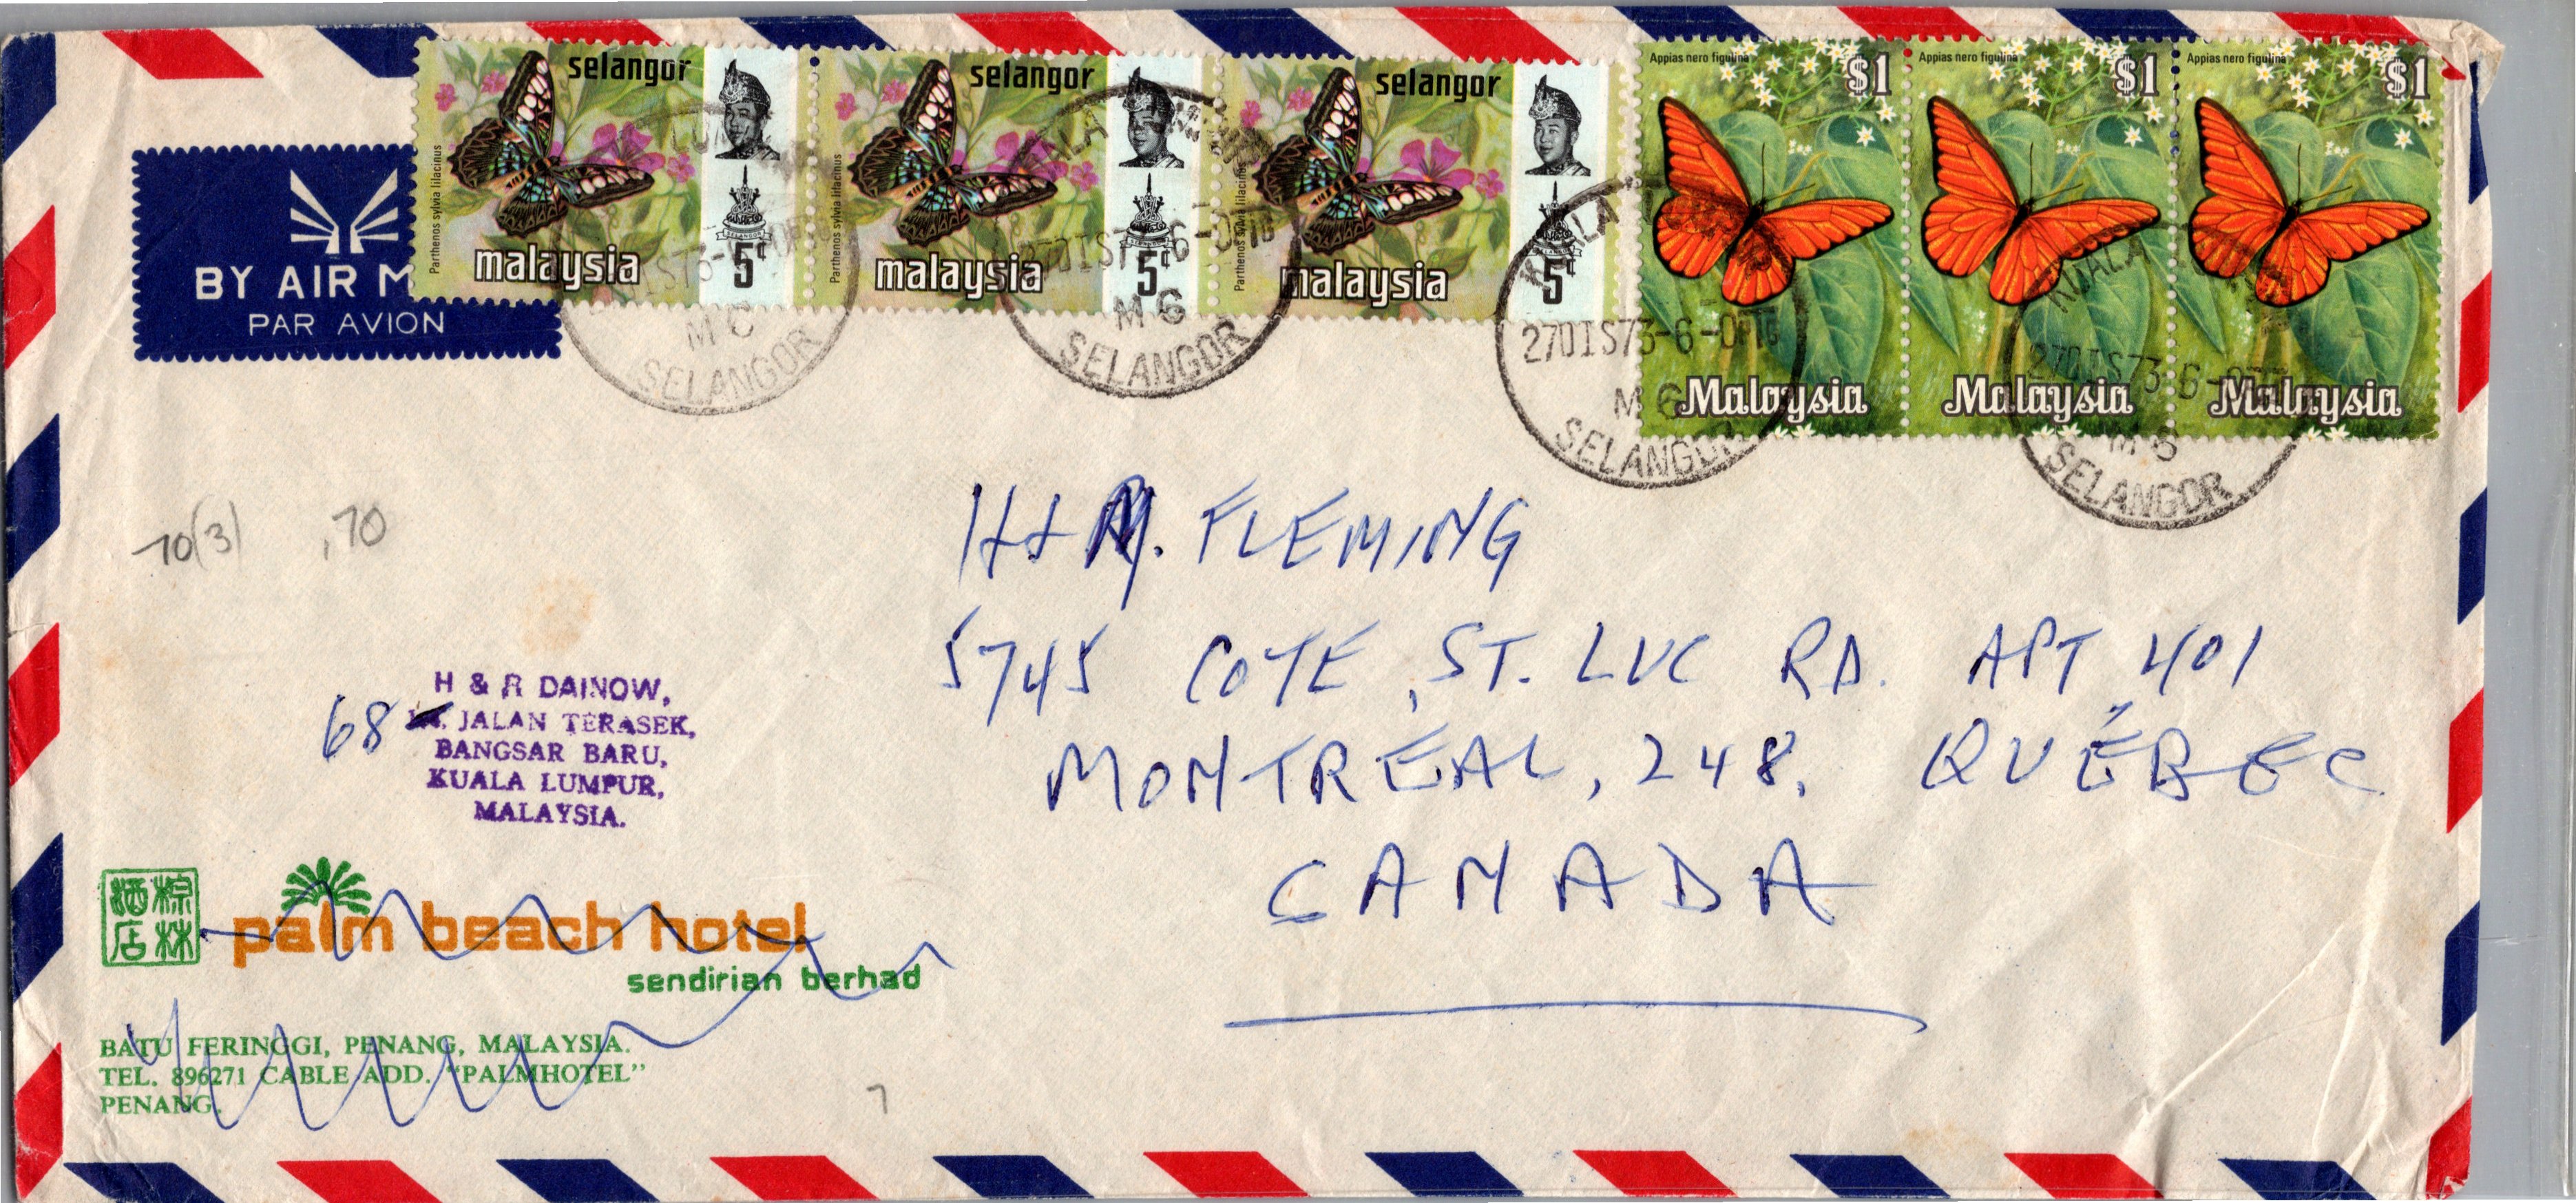 selangor
Parthenos sylvia lilacinus
malaysia
5¢
selangor
Parthenos sylvia lilacinus
malaysia
5¢
selangor
Parthenos sylvia lilacinus
malaysia
5¢
Appias nero figulina
$1
Malaysia
Appias nero figulina
$1
Malaysia
Appias nero figulina
$1
Malaysia
BY AIR M
PAR AVION
M 6
SELANGOR
M 6
SELANGOR
KUALA
27DIS73-6-0PTG
M 6
SELANGOR
KUALA
27DIS73-6-0PTG
M 6
SELANGOR
10(3) .70
H & M. FLEMING
5745 COTE ST. LUC RD. APT 401
MONTREAL, 248, QUÉBEC
CANADA
H & R DAINOW,
68 JALAN TERASEK,
BANGSAR BARU,
KUALA LUMPUR,
MALAYSIA.
棕林酒店
palm beach hotel
sendirian berhad
BATU FERINGGI, PENANG, MALAYSIA.
TEL. 896271 CABLE ADD. "PALMHOTEL"
PENANG.
7